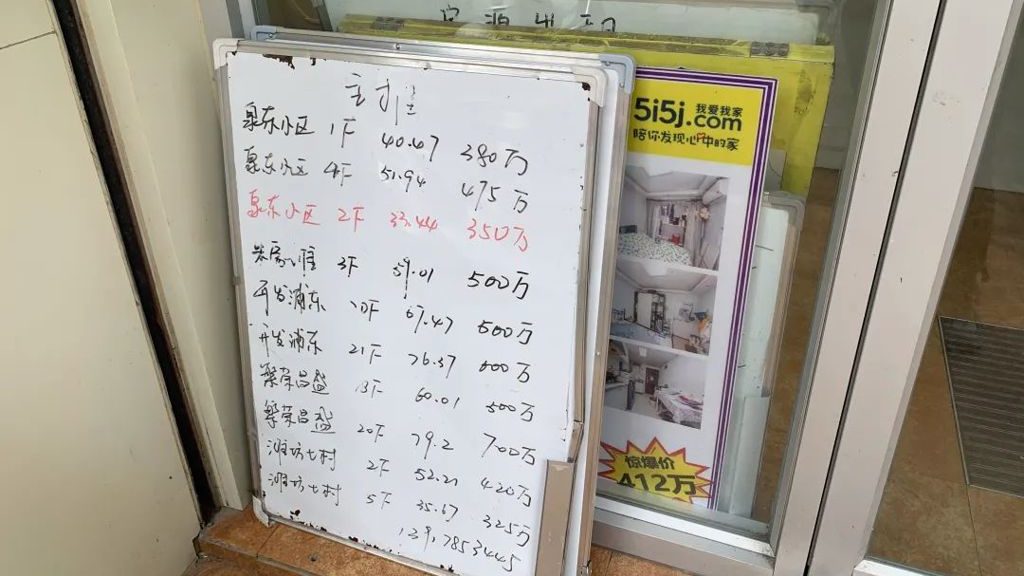 主推
泉东小区 1F 40.47 380万
泉东小区 4F 51.94 475万
泉东小区 2F 33.44 350万
3F 59.01 500万
开发浦东 10F 67.47 500万
开发浦东 21F 76.37 600万
繁荣昌盛 13F 60.01 500万
繁荣昌盛 20F 79.2 700万
潍坊七村 2F 52.21 420万
潍坊七村 5F 35.67 325万
13917853445
5i5j.com
我爱我家
陪你发现心中的家
惊爆价
412万